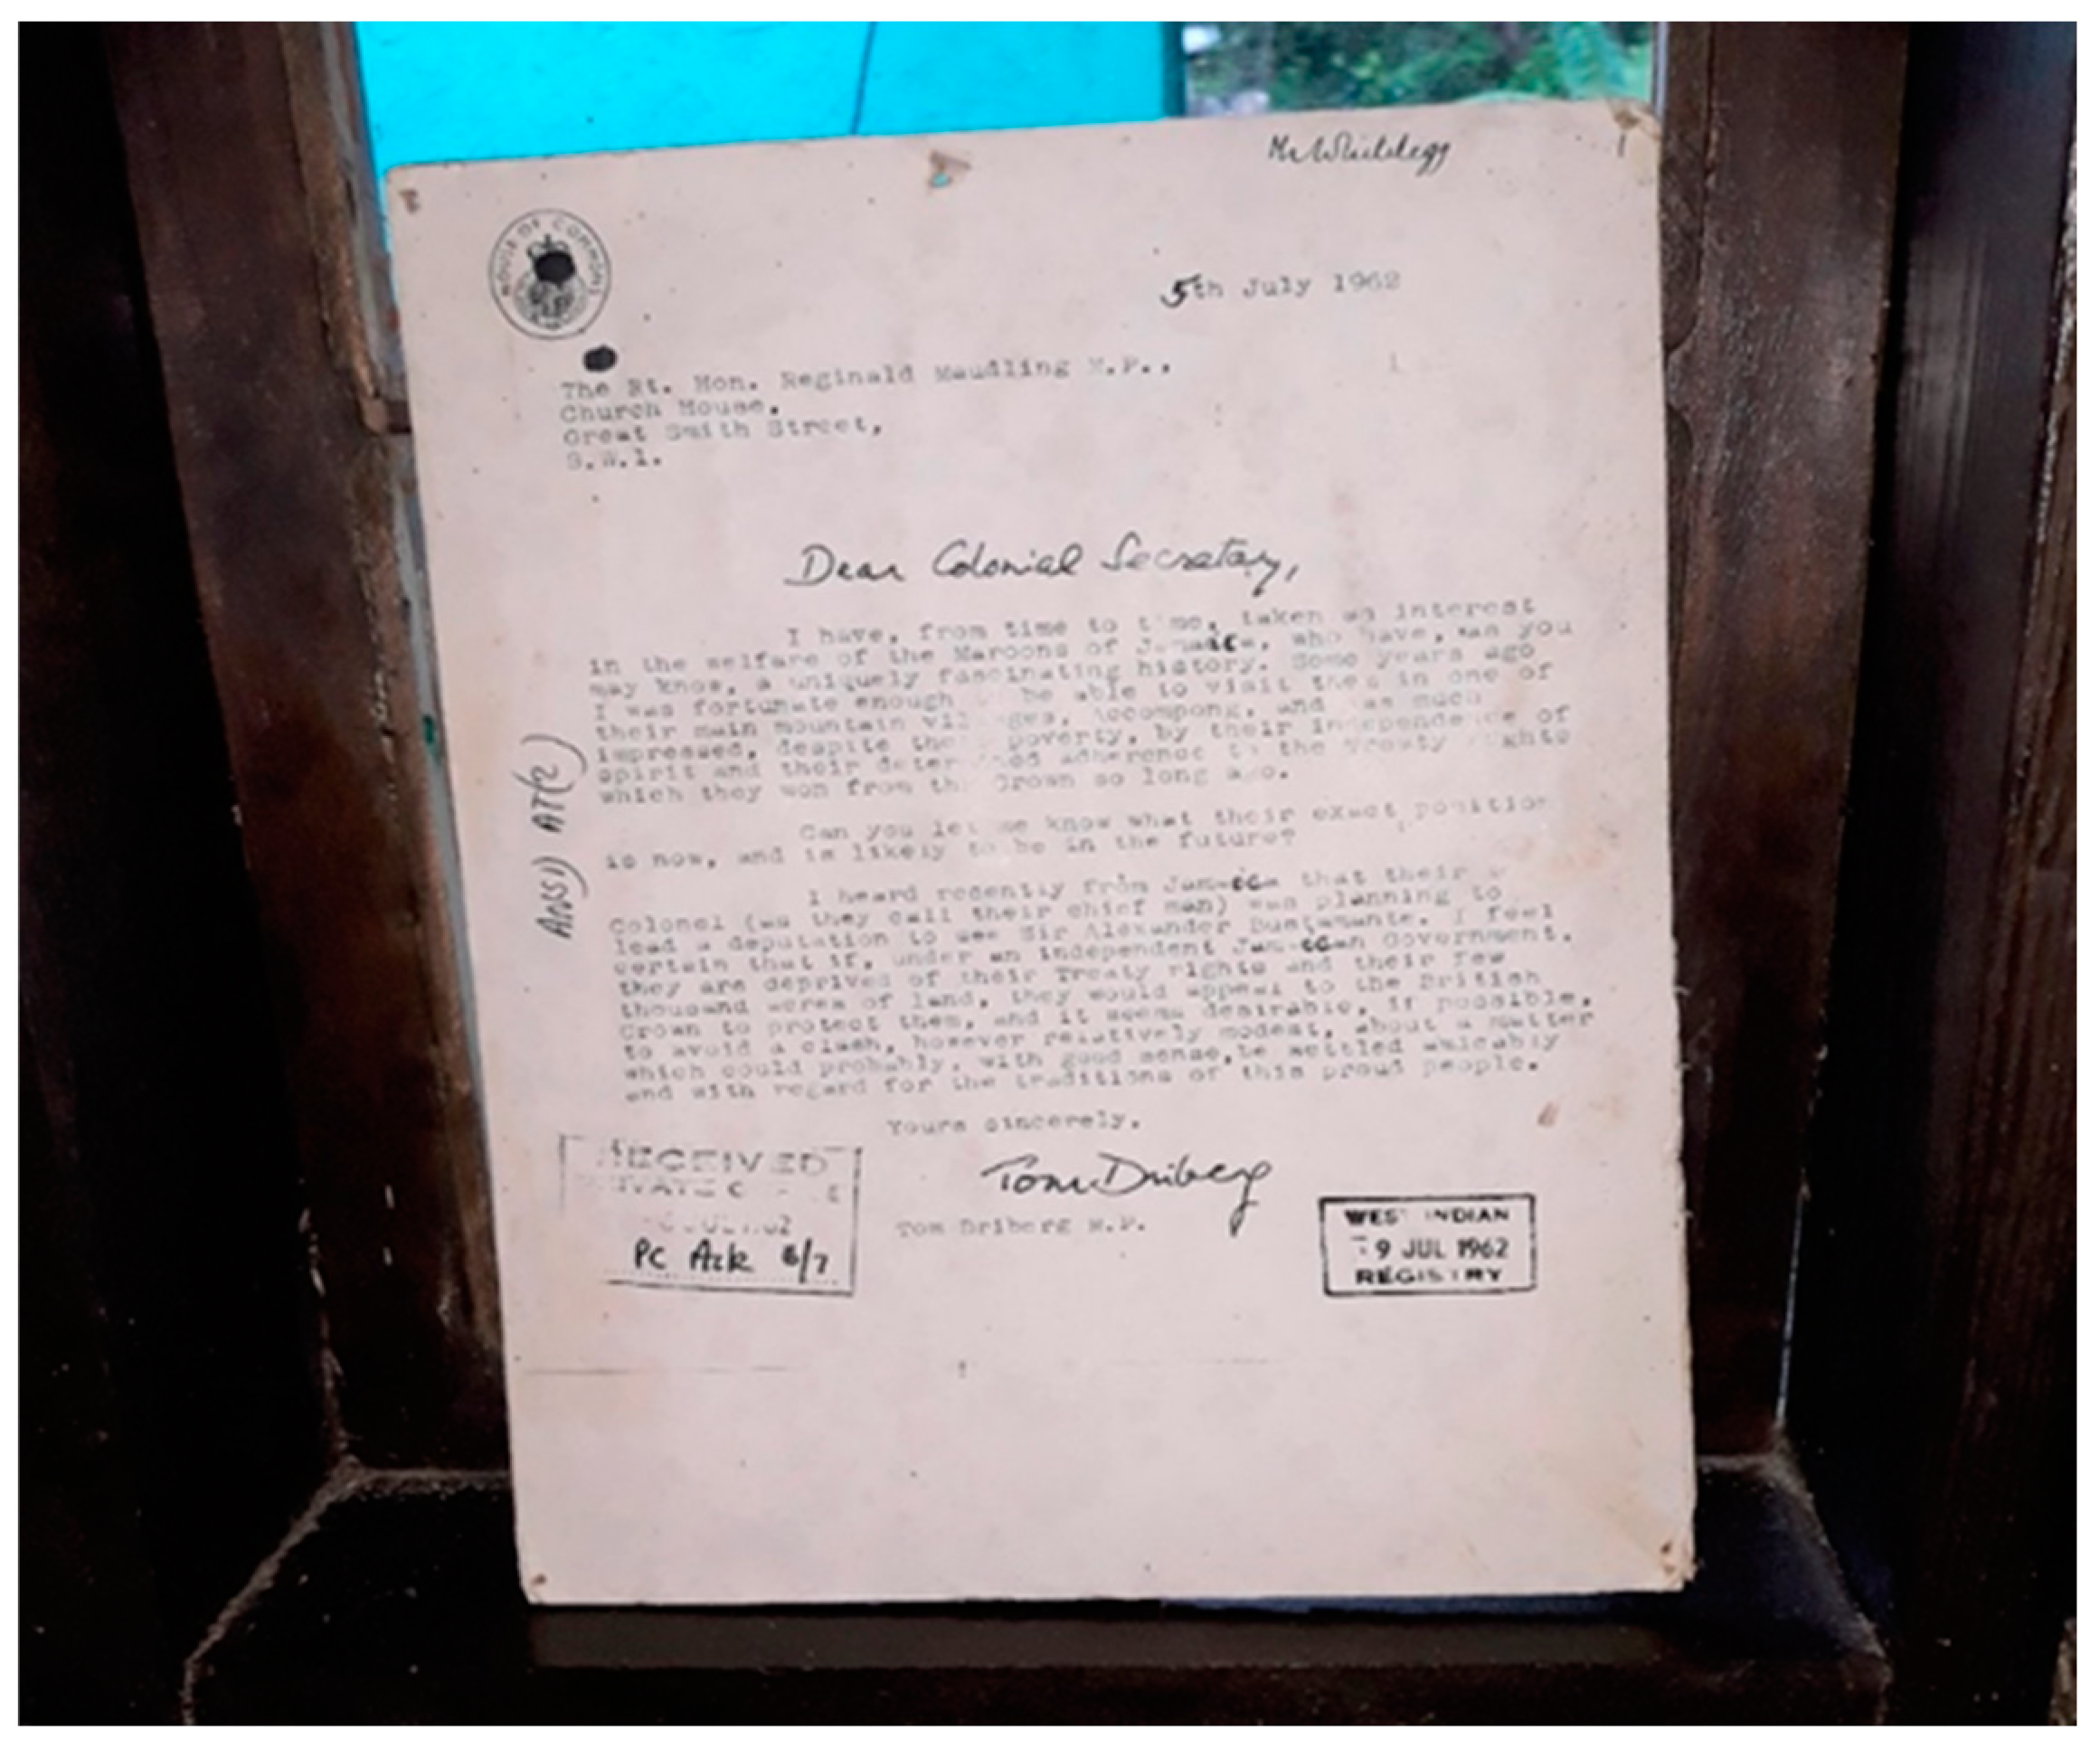 HOUSE OF COMMONS
5th July 1962
The Rt. Hon. Reginald Maudling M.P.,
Church House,
Great Smith Street,
S.W.1.
Dear Colonial Secretary,
I have, from time to time, taken an interest
in the welfare of the Maroons of Jamaica, who have, as you
may know, a uniquely fascinating history. Some years ago
I was fortunate enough to be able to visit them in one of
their main mountain villages, Accompong, and was much
impressed, despite their poverty, by their independence of
spirit and their determined adherence to the Treaty rights
which they won from the Crown so long ago.
Can you let me know what their exact position
is now, and is likely to be in the future?
I heard recently from Jamaica that their
Colonel (as they call their chief man) was planning to
lead a deputation to see Sir Alexander Bustamante. I feel
certain that if, under an independent Jamaican Government,
they are deprived of their Treaty rights and their few
thousand acres of land, they would appeal to the British
Crown to protect them, and it seems desirable, if possible,
to avoid a clash, however relatively modest, about a matter
which could probably, with good sense, be settled amicably
and with regard for the traditions of this proud people.
Yours sincerely,
Tom Driberg
Tom Driberg M.P.
RECEIVED
JUL 1962
PC Ack 6/7
WEST INDIAN
9 JUL 1962
REGISTRY